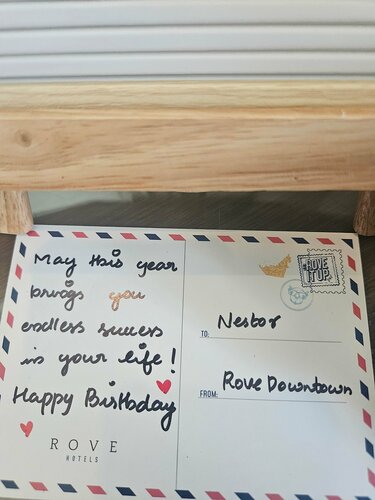 May this year
brings you
endless success
in your life!
Happy Birthday
ROVE
HOTELS
ROVE
IT UP
TO: Nestor
FROM: Rove Downtown